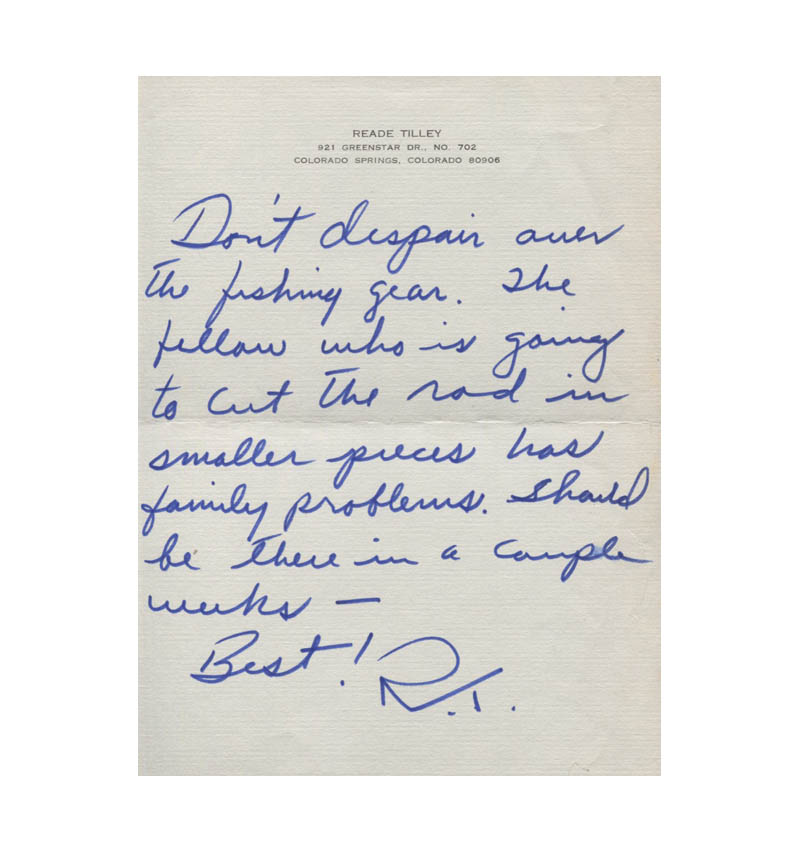 READE TILLEY
921 GREENSTAR DR., NO. 702
COLORADO SPRINGS, COLORADO 80906
Don't despair over
the fishing gear. The
fellow who is going
to cut the rod in
smaller pieces has
family problems. Should
be there in a couple
weeks —
Best! R.T.